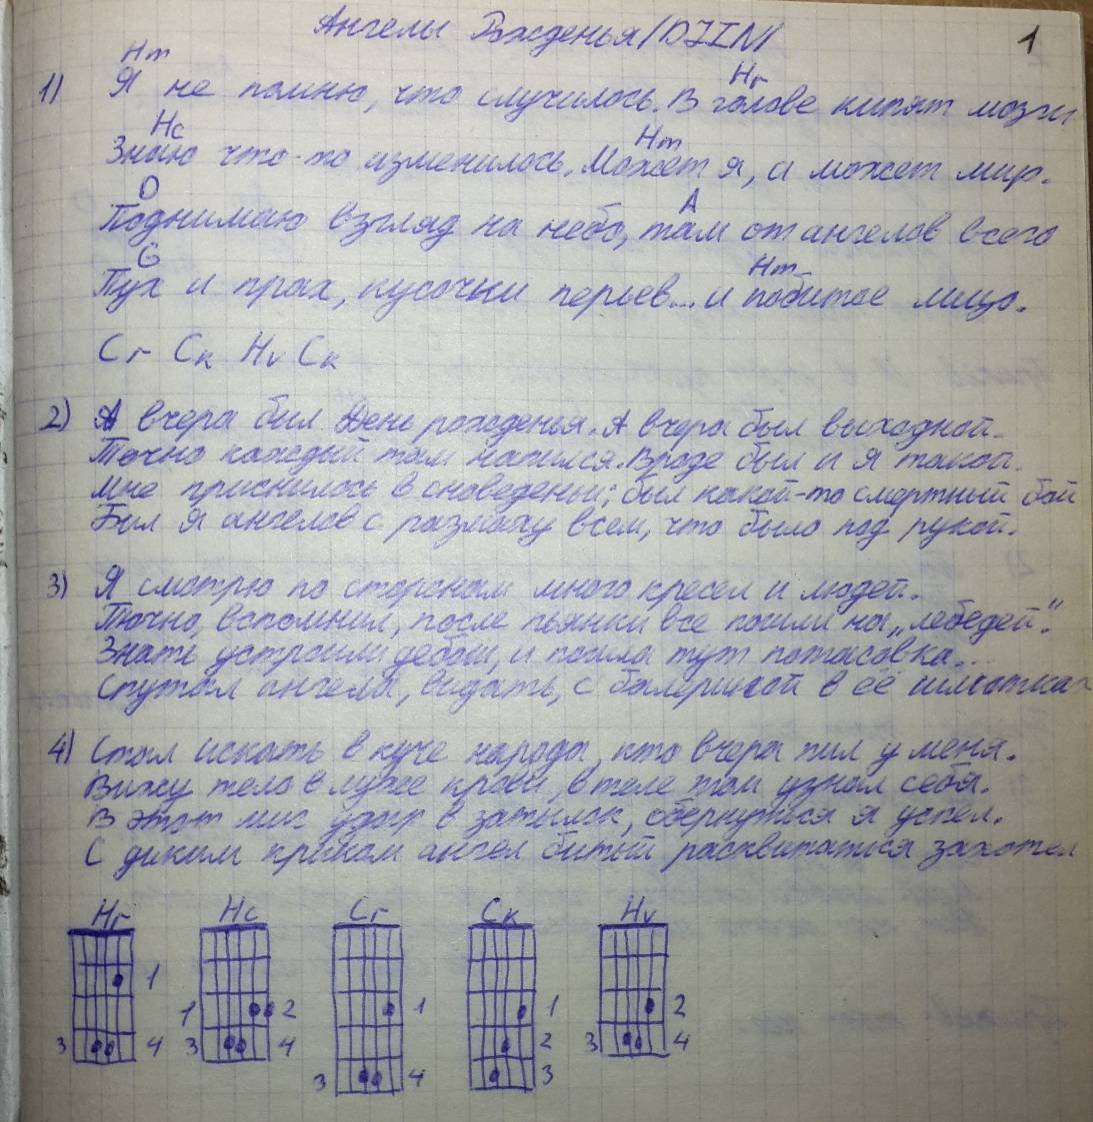 Ангелы Рожденья /DJIN/ 1
Hm Hr
1) Я не помню, что случилось. В голове кипят мозги
Hc Hm
Знаю что-то изменилось. Может я, а может мир.
D A
Поднимаю взгляд на небо, там от ангелов всего
G Hm
Пух и прах, кусочки перьев... и побитое лицо.
Cr Ck Hv Ck
2) А вчера был День рожденья. А вчера был выходной.
Точно каждый там напился. Вроде был и я такой.
Мне приснилось в сноведеньи; был какой-то смертный бой
Бил я ангелов с размаху всем, что было под рукой.
3) Я смотрю по сторонам много кресел и людей.
Точно, вспомнил, после пьянки все пошли на „лебедей".
Знать устроили дебош, и пошла тут потасовка...
Спутал ангела, видать, с балериной в её шмотках
4) Стал искать в куче народа, кто вчера пил у меня.
Вижу тело в луже крови, в теле том узнал себя.
В этот миг удар в затылок, обернуться я успел.
С диким криком ангел битый расквитаться захотел
Hr Hc Cr Ck Hv
1 1 2 1 1 2
3 4 3 4 3 4 2 3 3 4